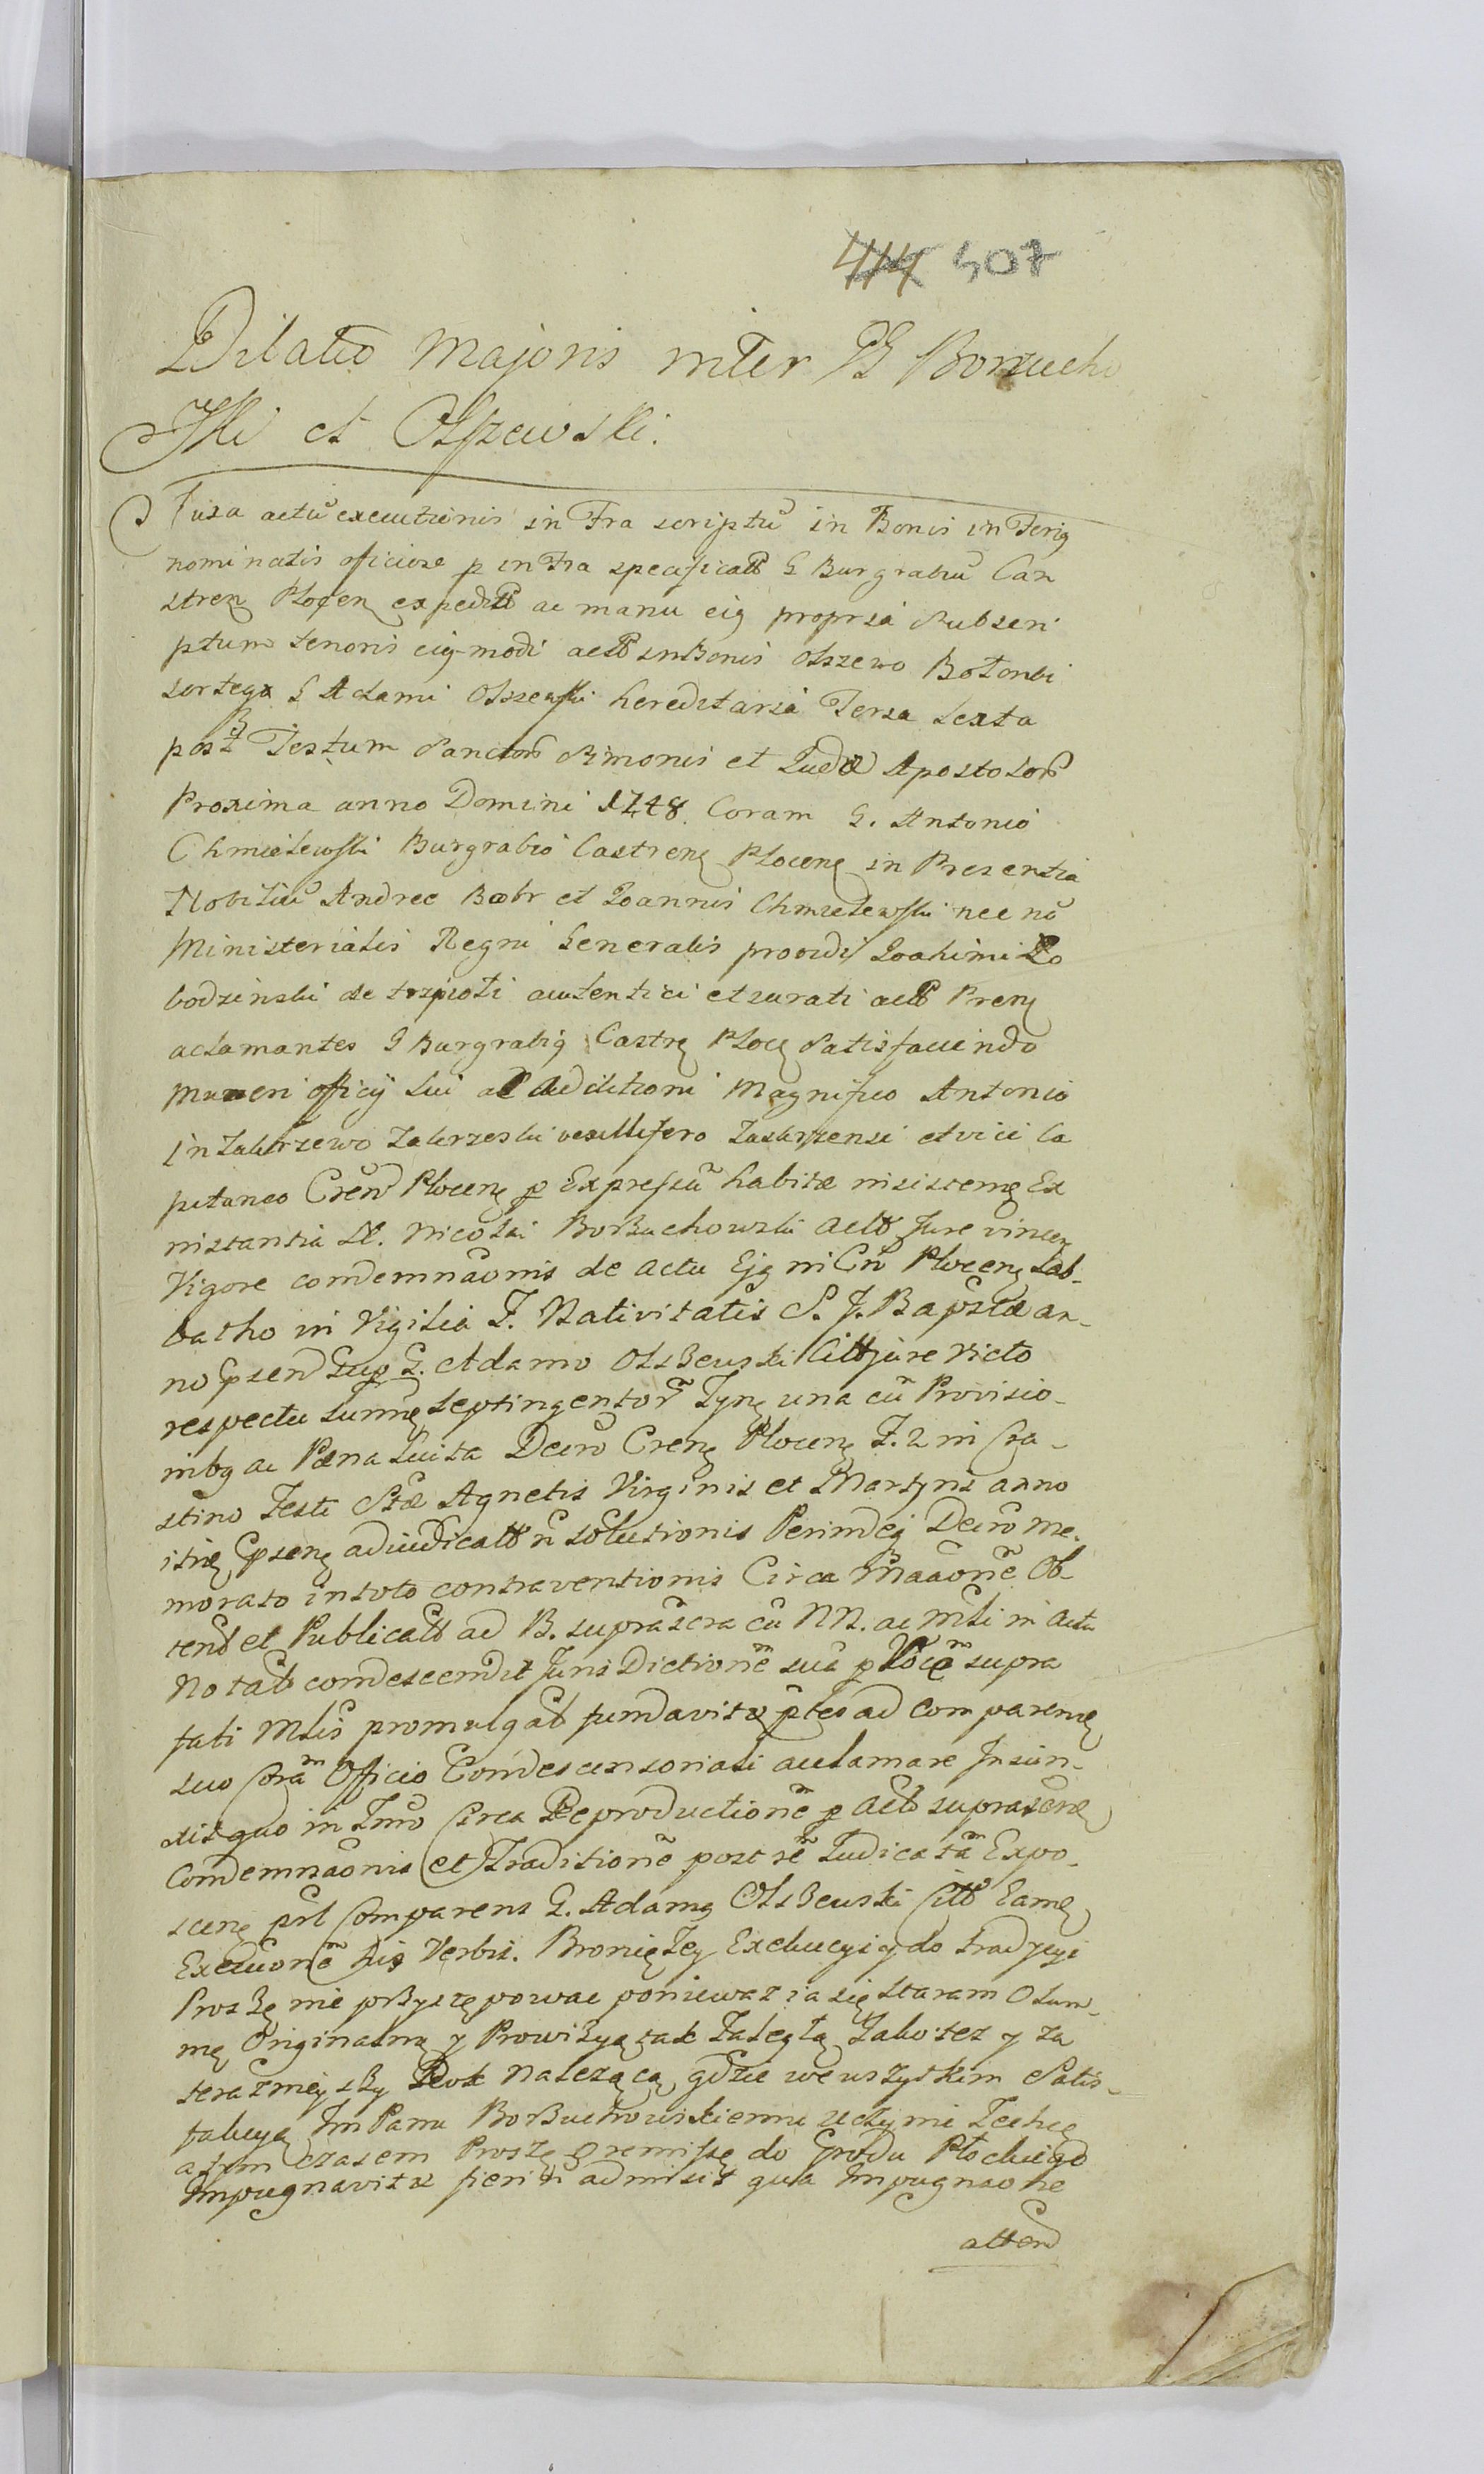 414 507
Dilatio Majoris inter G Borzucho
wski et Olszewski.
Juxa actũ executionis in Fra scriptũ in Bonis in Feriꝯ
nominatis oficiose p in Fra specificatt G Burgrabiũ Can
stren Plocen expeditt ac manu eiꝯ propria Subscri
ptum tenoris eiꝯmodi actt in Bonis Olszewo
sortegꝫ G Adami Olszewski hereditaria Feria sexta
post Festum Sanctorũ Simonis et Judæ Apostolorũ
Proxima anno Domini 1748. Coram G. Antonio
Chmielewski Burgrabio Castrenꝫ Plocenꝫ in Presentia
Nobiliũ Andree Bobr et Joannis Chmielewski nec nõ
Ministerialis Regni Generalis providi Joahimi Lo
bodzinski de autentici et iurati actt Prenꝫ
aclamantes G Burgrabiꝯ Castrꝫ Plocꝫ Satisfaciendo
muneri officij sui ad Magnifico Antonio
in Zakrzewo Zakrzeski vexillifero Zaskrzensi et vice Ca
pitaneo Crẽn Plocenꝫ p Expressũ habitæ insistenꝫ Ex
nistantia G. Nicolai Borzuchowski actt Jure vincenꝫ
Vigore condemnãonis de actu Ejꝯ in Crñ Plocenꝫ Sab-
batho in Vigilia F. Nativitatis S. J. Baptæ an-
no Psen sup G. Adamo Olszewski Citt jure victo
respectu summꝫ septingentorũ Tynꝫ una cũ Provisio-
nibꝯ ac Pæna Luita Decrõ Crenꝫ Plocenꝫ F. 2 in Cra-
stino Festi Stæ Agnetis Virginis et Martyris anno
itidꝫ Psenꝫ adiudicatt ñ solutionis Perindeqꝫ Decrõ me-
morato in toto contraventionis Circa Ob-
tent et Publicatt ad B. suprascra cũ NN. ac Mli in actu
Notatt condescendit Juris Dictionẽ suã p Vocẽ supra
fati Mlis promulgatt fundavit ptes ad comparenꝫ
suo Corã Officio Condescensoriali aclamare Insun-
ctisquo in Tmo Circa Reproductionẽ p actt suprascrñ
Condemnãonis et Traditionẽ post rẽ Judicatã Expo-
scenꝫ prt Comparens G. Adamꝯ Olszewski Citt Eamꝫ
Execuonẽ his Verbis. Bronię Tey Exekucyi y do tradycyi
Proszę nie przystępować ponieważ ia się staram o Sum-
mę Originalną y Prowizyą tak Zaległą Jako też y za
teraznieyszy Rok Należącą, gdzie we wszytkim Satis-
fakcyą Im Panu Borzuchowskiemu uczynić Zechcę
a tym czasem Proszę o remissę do Grodu Płockiego
Impugnavitæ fieri ñ admisit qua Impugnaone
atten